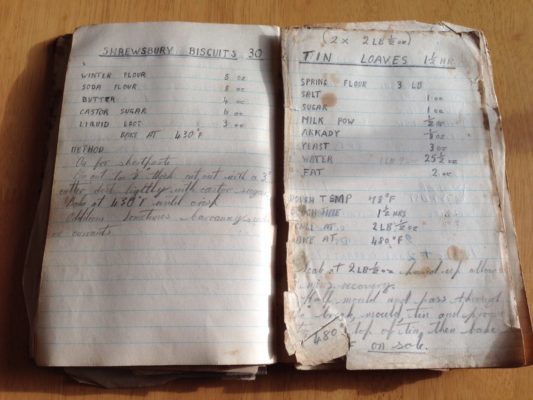 SHREWSBURY BISCUITS 30
WINTER FLOUR 8 oz
SODA FLOUR 8 oz
BUTTER 4 oz
CASTOR SUGAR 6 oz
LIQUID EGGS 3 oz
BAKE AT 430°F
METHOD
As for shortpaste
out to thick cut out with a 3"
cutter, dust lightly with castor sugar
Bake at 430°F until crisp
Additions Sometimes caraway seeds
or currants
(2 x 2 LB ½ oz)
TIN LOAVES 1½ HR
SPRING FLOUR 3 LB
SALT 1 oz
SUGAR 1 oz
MILK POW ½ oz
ARKADY oz
YEAST 3 oz
WATER 25½ oz
FAT 2 oz
DOUGH TEMP 78°F
DOUGH TIME 1½ HRS
SCALE AT 2 LB ½ oz
BAKE AT 480°F
Scale at 2LB ½ oz hand up allow
mins recovery.
mould and pass through
mould, tin and prove
top of tin, then bake
480 F on sole.